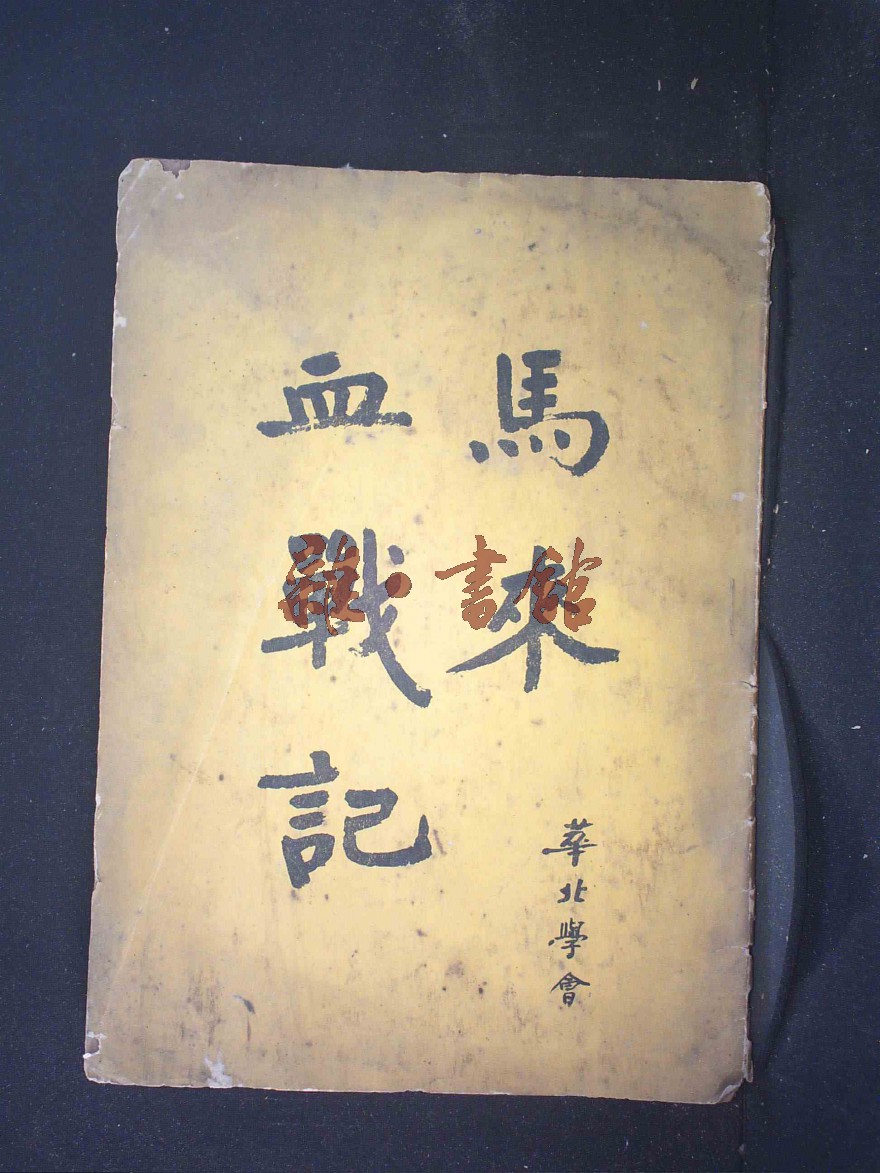 馬來
血戰記
華北學會
雜·書館